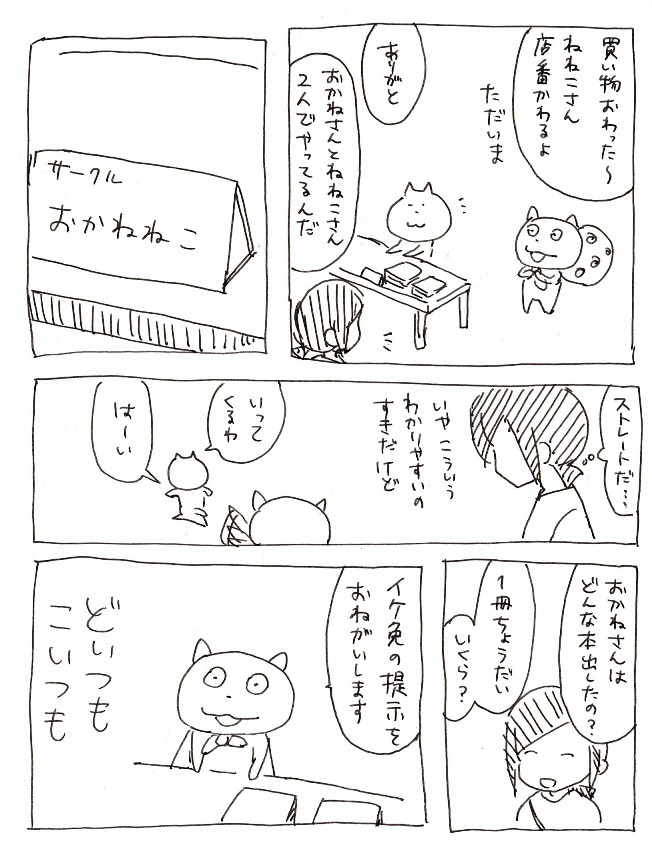 買い物おわった〜
ねねこさん
店番かわるよ
ただいま
ありがと
おかねさんとねねこさん
2人でやってるんだ
サークル
おかねねこ
ストレートだ…
いや こういう
わかりやすいの
すきだけど
いって
くるわ
はーい
おかねさんは
どんな本出したの?
1冊ちょうだい
いくら?
イケ免の提示を
おねがいします
どいつも
こいつも